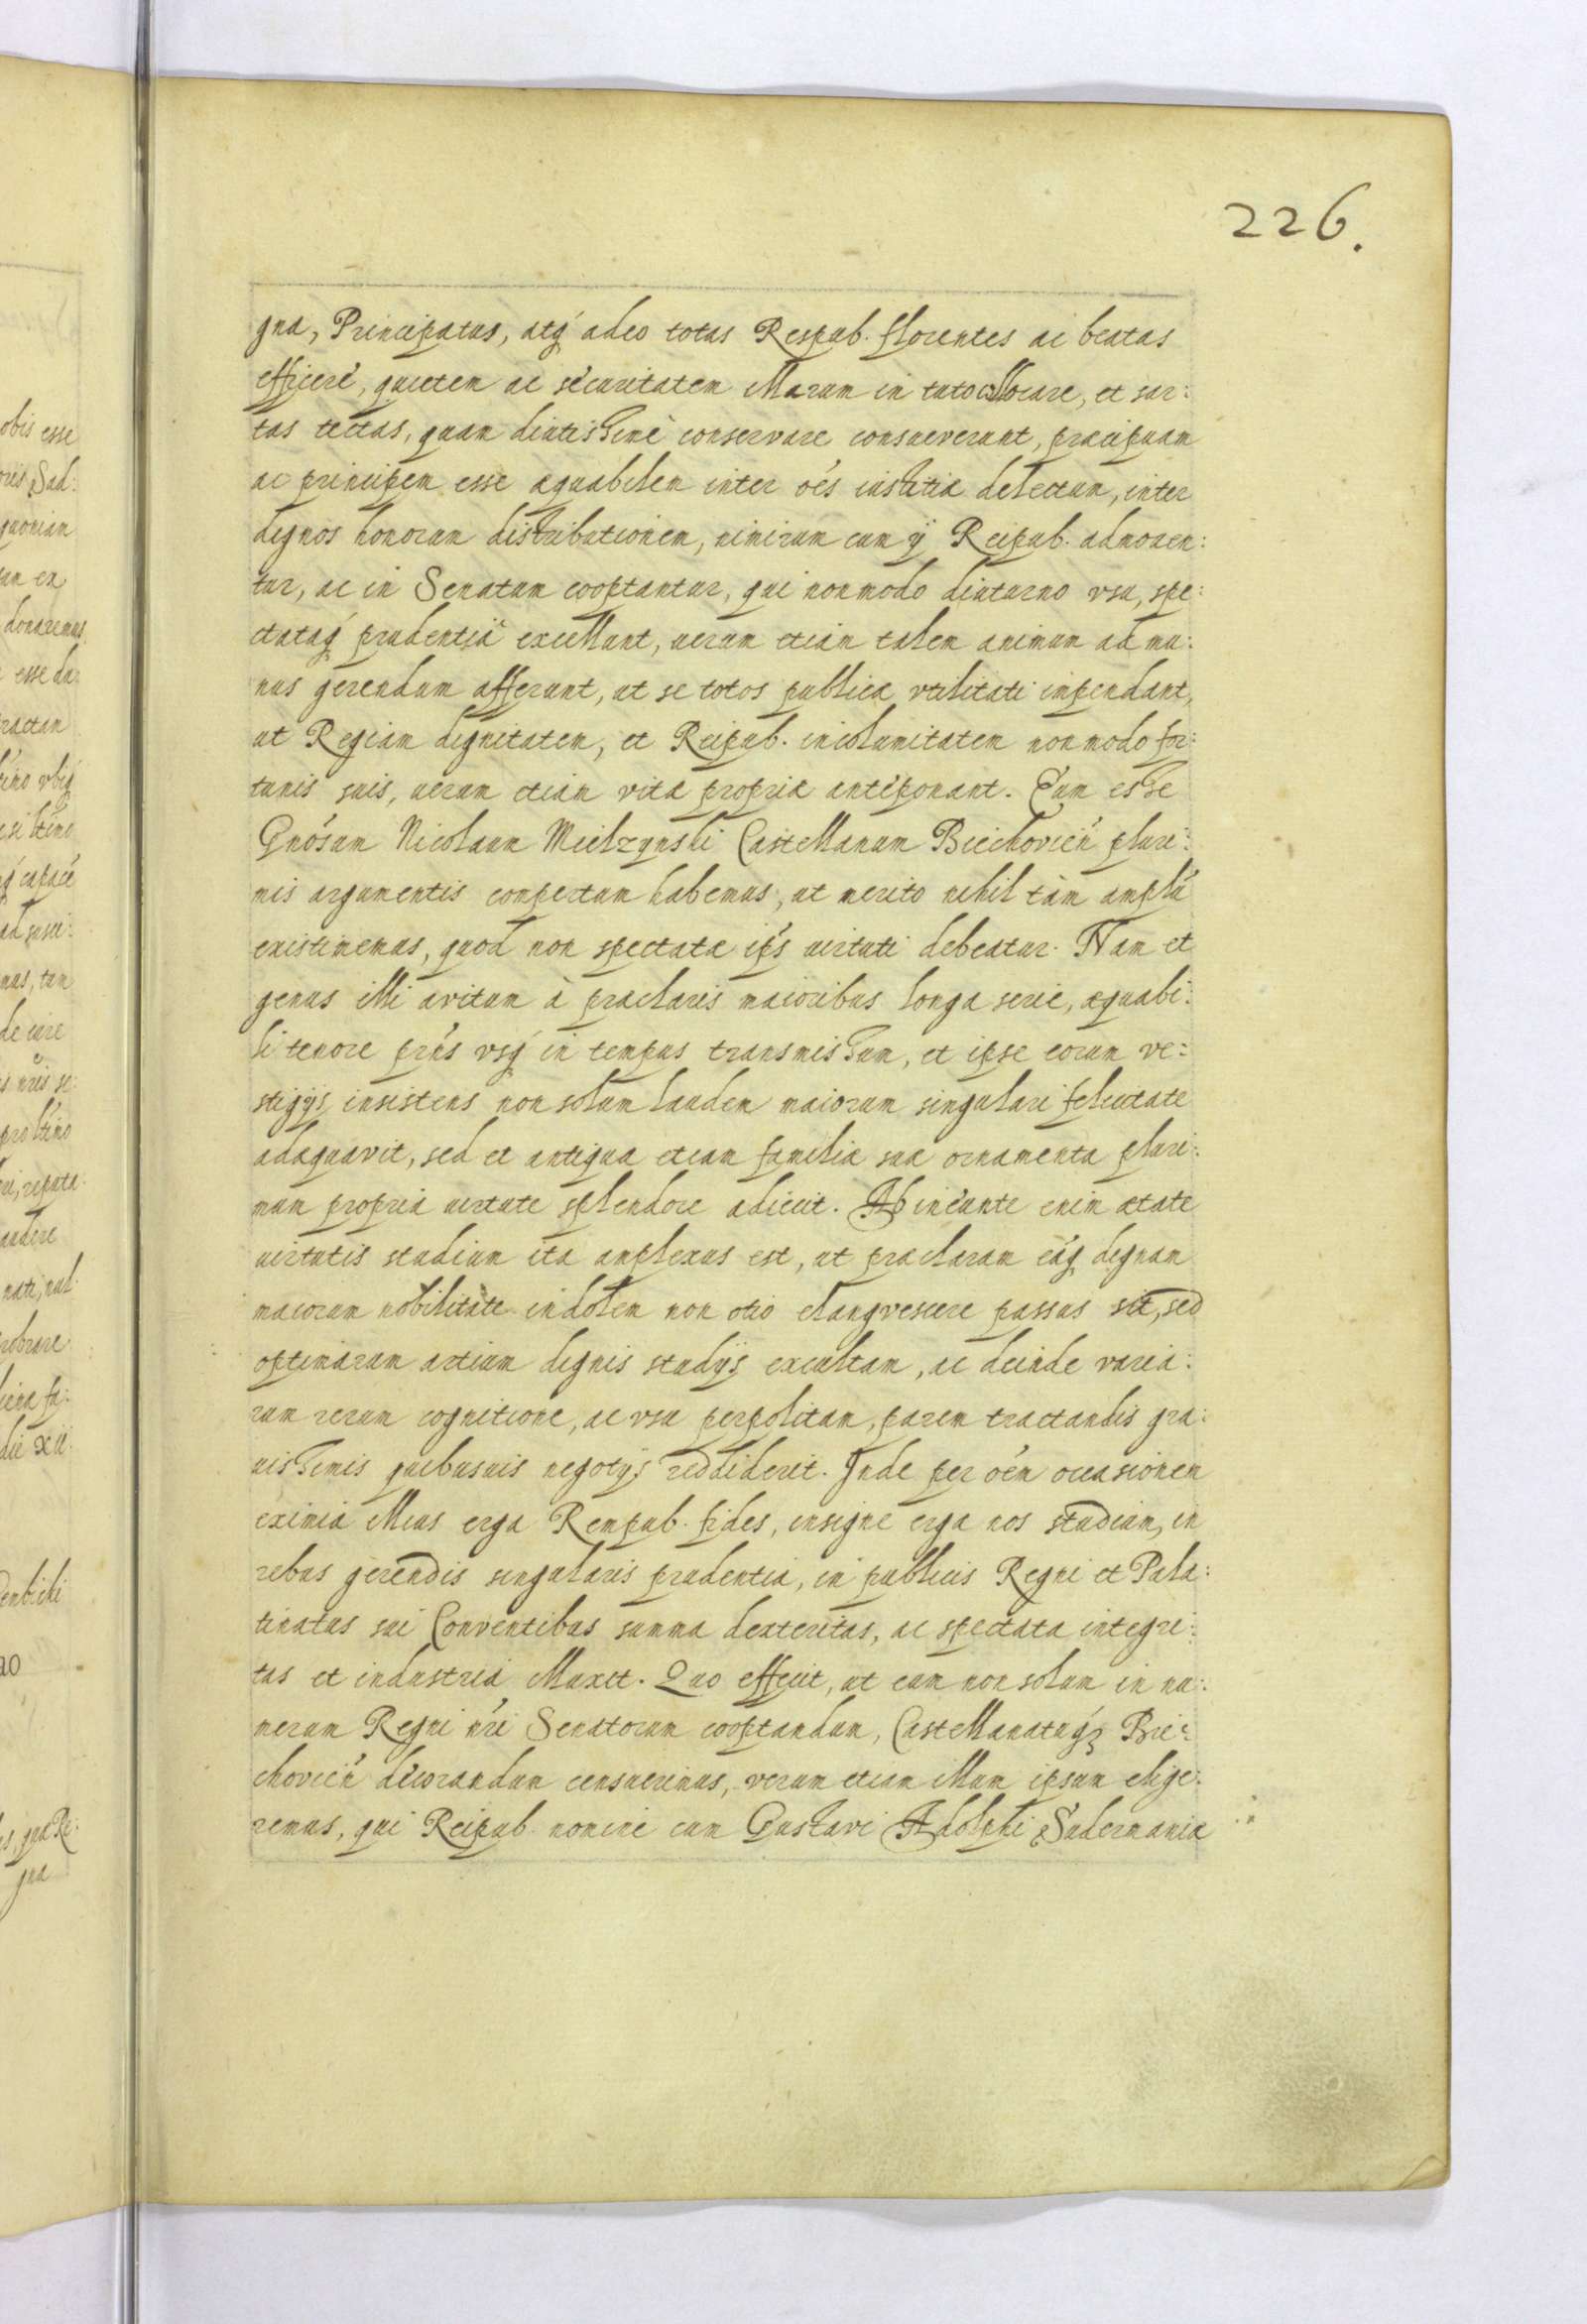 226.
gna, Principatus, atq́ adeo totas Respub. florentes ac beatas
efficere, quietem ac securitatem illarum in tuto collocare, et sar:
tas tectas, quam diutissimè conservare consueverunt, præcipuam
ac principem esse æquabilem inter oẽs iustitiæ delectum, inter
dignos honorum distributionem, nimirum cum ij Reipub. admoven:
tur, ac in Senatum cooptantur, qui non modo diuturno vsu, spe:
ctataq́ prudentiâ excellunt, uerum etiam talem animum ad mu:
nus gerendum afferunt, ut se totos publicæ vtilitati impendant,
ut Regiam dignitatem, et Reipub. incolumitatem non modo for:
tunis suis, uerum etiam vitæ propriæ anteponant. Eum esse
Gnõsum Nicolaum Mielzynski Castellanum Biechovień pluri:
mis argumentis compertum habemus, ut merito nihil tàm amplũ
existimemus, quod non spectatæ ip̃s uirtuti debeatur. Nam et
genus illi avitum à præclaris maioribus longa serie, æquabi:
li tenore prñs vsq́ in tempus transmissum, et ipse eorum ve:
stigijs insistens non solum laudem maiorum singulari felicitate
adæquavit, sed et antiqua etiam familiæ suæ ornamenta pluri:
mum propriæ uirtute splendore adiecit. Ab ineunte enim ætate
uirtutis studium ita amplexus est, ut præclaram eáq́ dignam
maiorum nobilitate indolem non otio elangvescere passus sit, sed
optimarum artium dignis studijs excultam, ac deinde varia:
rum rerum cognitione, ac vsu perpolitam, parem tractandis gra:
uissimis quibusuis negotijs reddiderit. Inde per oẽm occasionem
eximia illius erga Rempub. fides, insigne erga nos studium, in
rebus gerendis singularis prudentia, in publicis Regni et Pala:
tinatus sui Conventibus summa dexteritas, ac spectata integri:
tas et industria illuxit. Quo effecit, ut eum non solum in nu:
merum Regni nr̃i Senatorum cooptandum, Castellanatuq́ Bie:
chovień decorandum censuerimus, verum etiam illum ipsum elige:
remus, qui Reipub. nomine cum Gustavi Adolphi Sudermaniæ